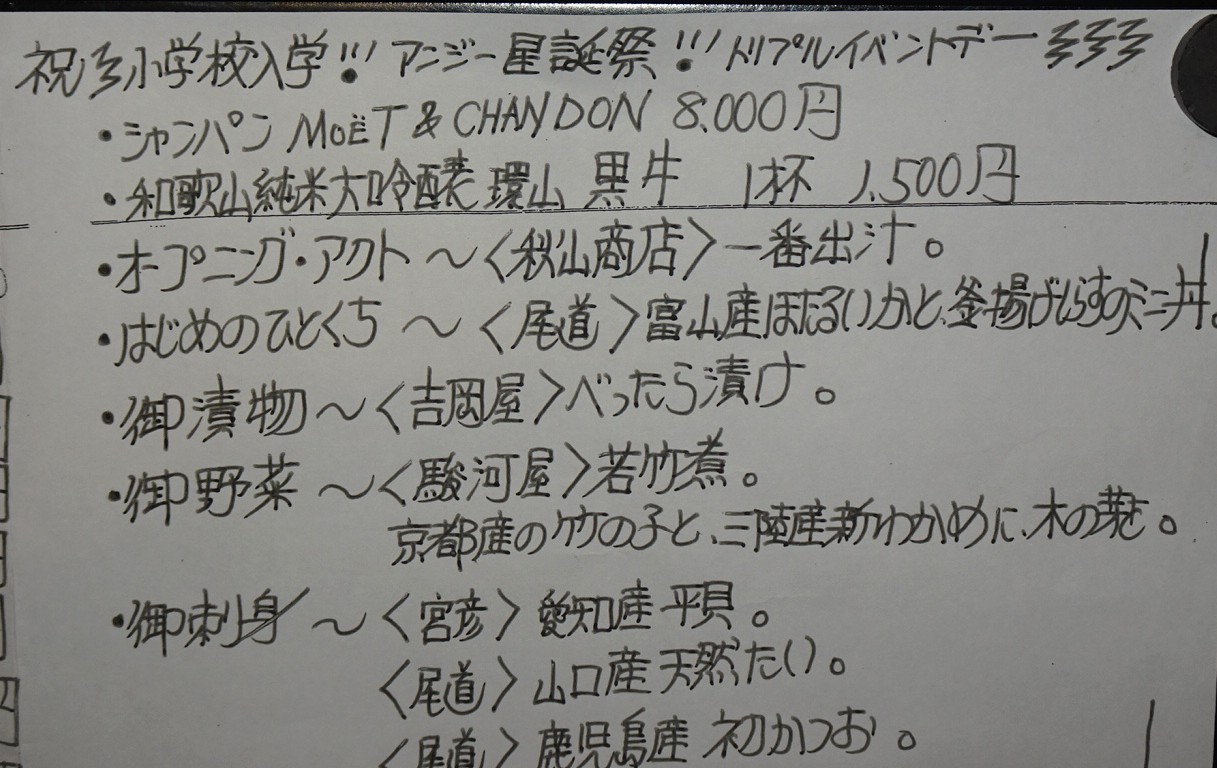 祝彡小学校入学!!! アンジー星誕祭!!! トリプルイベントデー彡彡彡
・シャンパン MOËT & CHANDON 8.000円
・和歌山純米大吟醸 環山 黒牛 1杯 1.500円
・オープニング・アクト〜〈秋山商店〉一番出汁。
・はじめのひとくち〜〈尾道〉富山産ほたるいかと、釜揚げしらすのミニ丼。
・御漬物〜〈吉岡屋〉べったら漬け。
・御野菜〜〈駿河屋〉若竹煮。
京都産の竹の子と、三陸産新わかめに、木の葉を。
・御刺身〜〈宮彦〉愛知産 平貝。
〈尾道〉山口産 天然たい。
〈尾道〉鹿児島産 初かつお。